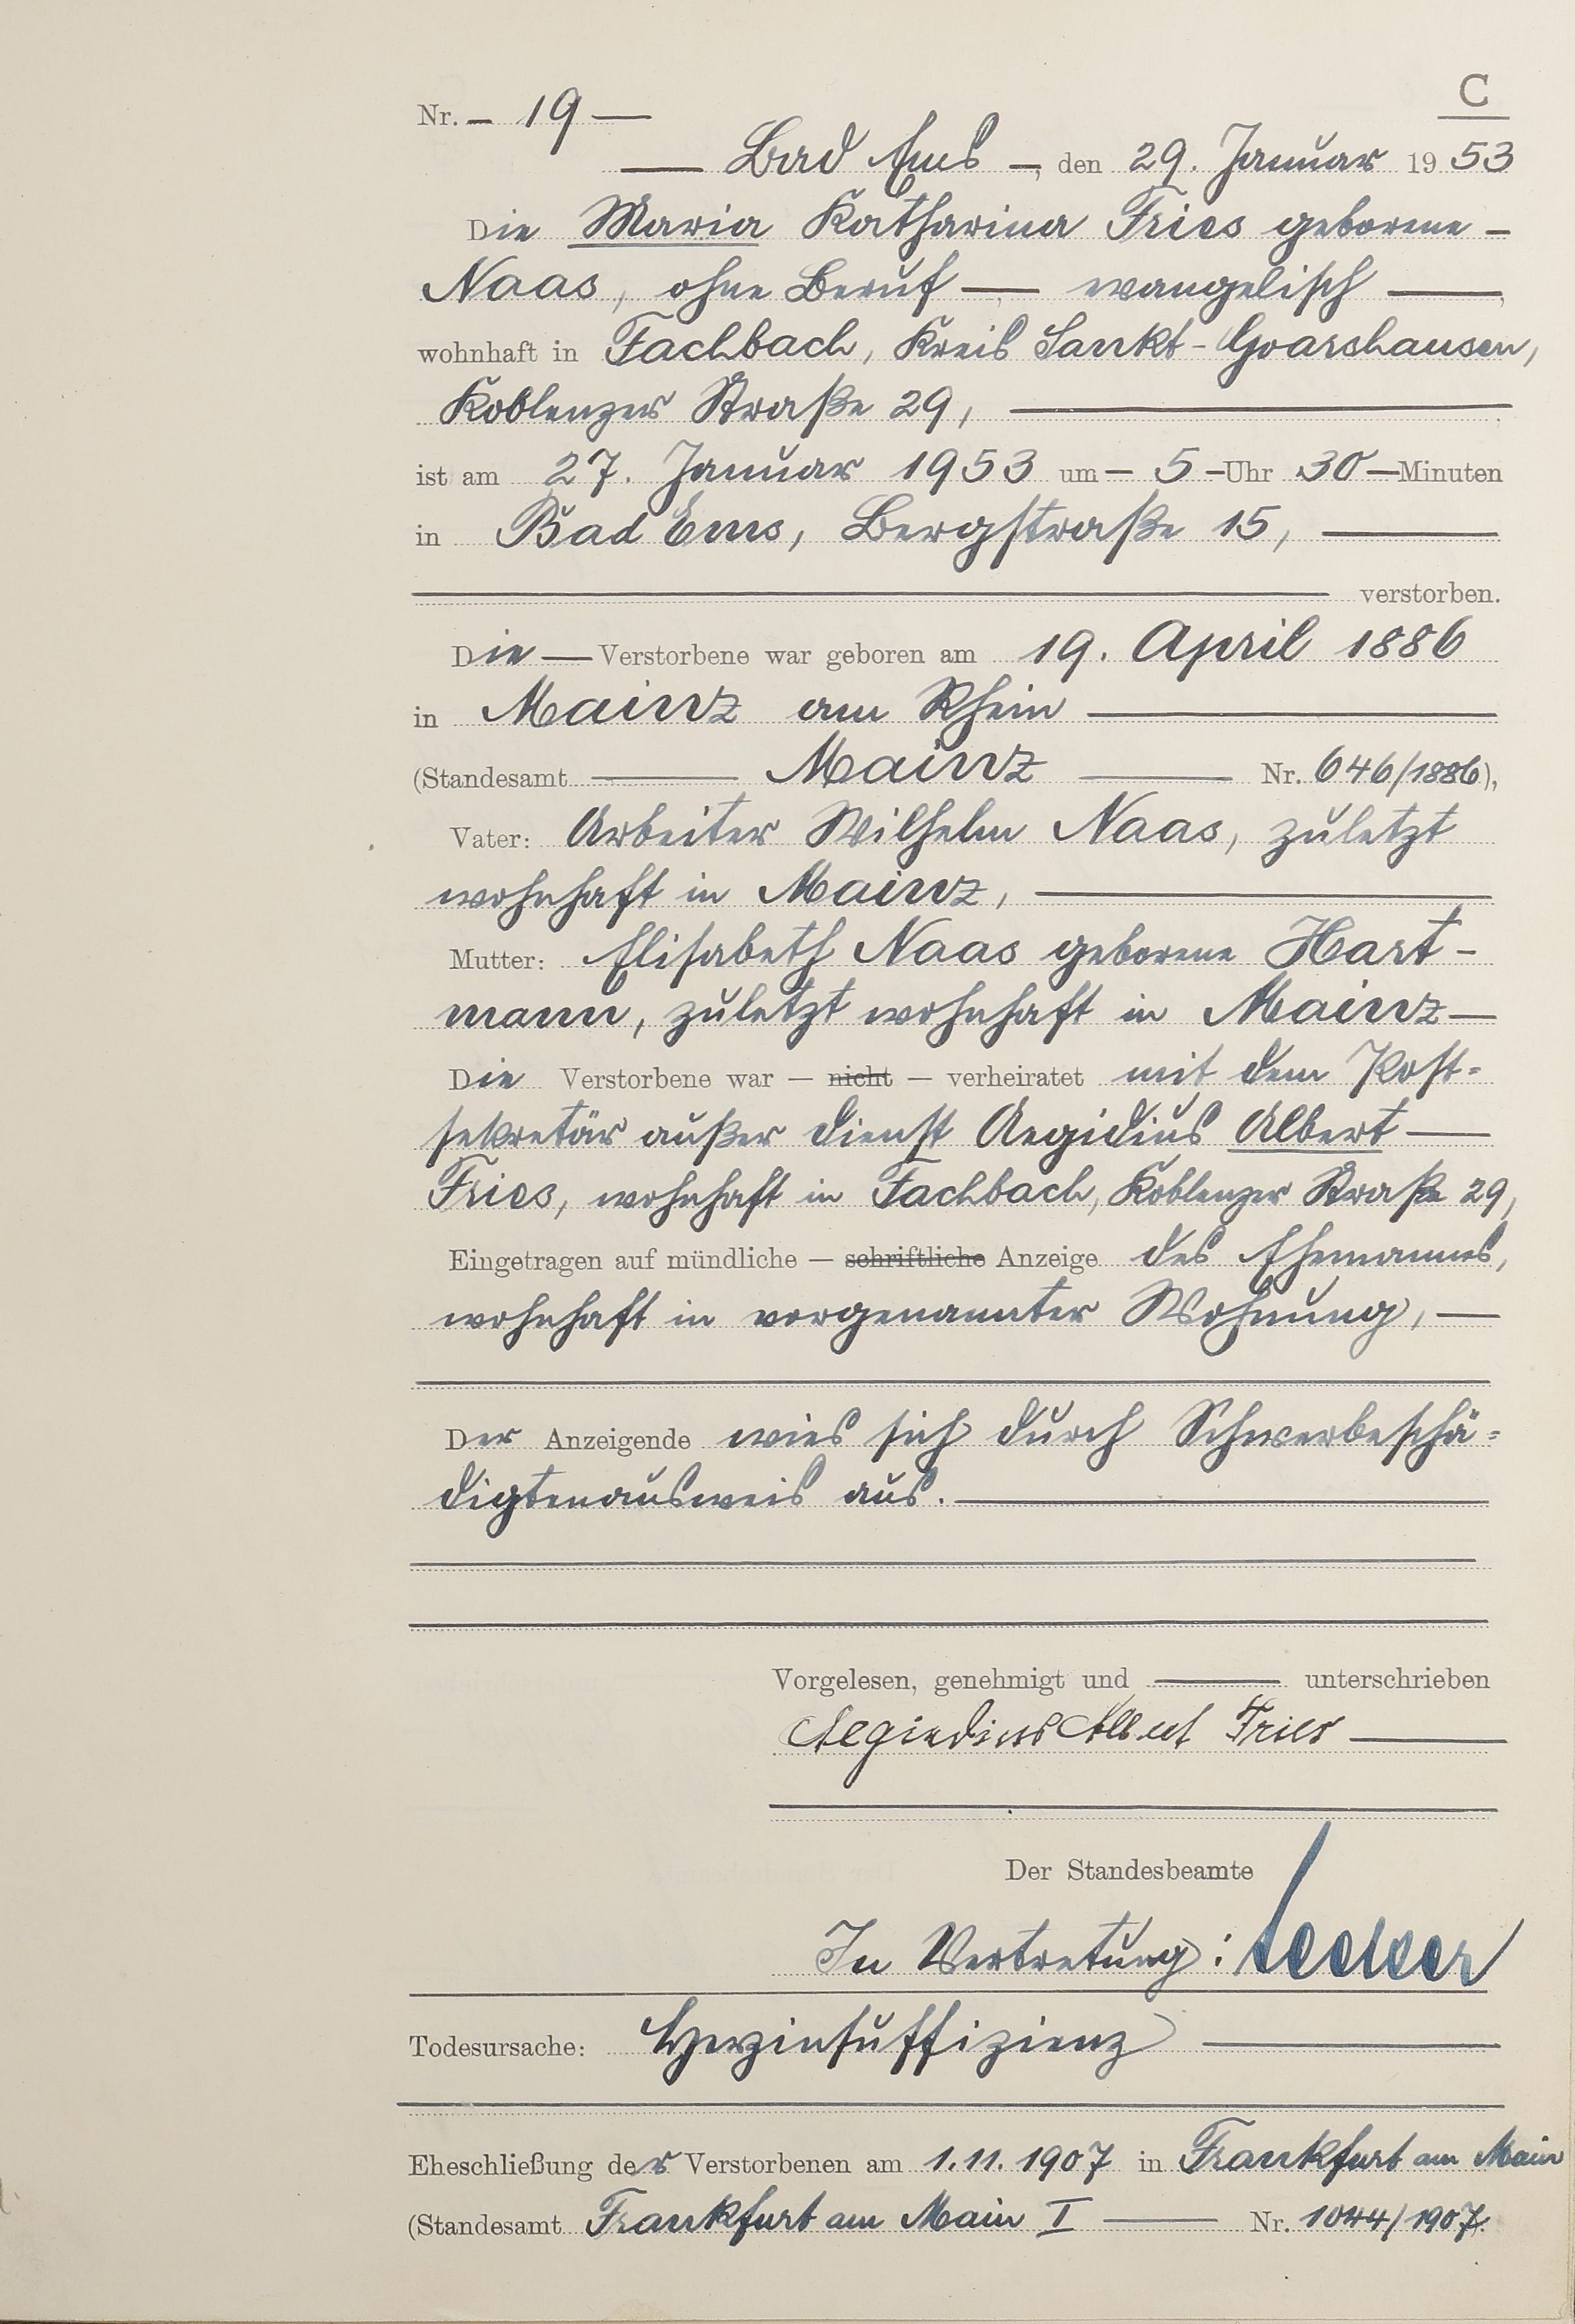 C
Nr. – 19 —
— Bad Ems –, den 29. Januar 1953
Die Maria Katharina Fries geborene –
Naas, ohne Beruf — evangelisch —,
wohnhaft in Fachbach, Kreis Sankt-Goarshausen,
Koblenzer Straße 29, —
ist am 27. Januar 1953 um – 5 – Uhr 30 — Minuten
in Bad Ems, Bergstraße 15, —
— verstorben.
Die — Verstorbene war geboren am 19. April 1886
in Mainz am Rhein —
(Standesamt — Mainz — Nr. 646/1886),
Vater: Arbeiter Wilhelm Naas, zuletzt
wohnhaft in Mainz, —
Mutter: Elisabeth Naas geborene Hart-
mann, zuletzt wohnhaft in Mainz —
Die Verstorbene war — nicht — verheiratet mit dem Post-
sekretär außer Dienst Aegidius Albert —
Fries, wohnhaft in Fachbach, Koblenzer Straße 29,
Eingetragen auf mündliche — schriftliche Anzeige des Ehemannes,
wohnhaft in vorgenannter Wohnung, —
Der Anzeigende wies sich durch Schwerbeschä-
digtenausweis aus. —
Vorgelesen, genehmigt und — unterschrieben
Aegiedius Albert Fries —
Der Standesbeamte
In Vertretung:
Todesursache: Herzinsuffizienz —
Eheschließung der Verstorbenen am 1.11.1907 in Frankfurt am Main
(Standesamt Frankfurt am Main I — Nr. 1044/1907.